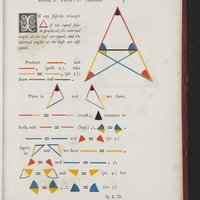 BOOK I. PROP. V. THEOREM.
IN any isosceles triangle
if the equal sides
be produced, the external
angles at the base are equal, and the
internal angles at the base are also
equal.
Produce and
(post. 2.), take
(pr. 3.);
draw and
Then in and we have,
(const.), common to
both, and (hyp.)
and (pr. 4.)
Again in and we have
and (pr. 4.) but
(ax. 3.)
Q. E. D.